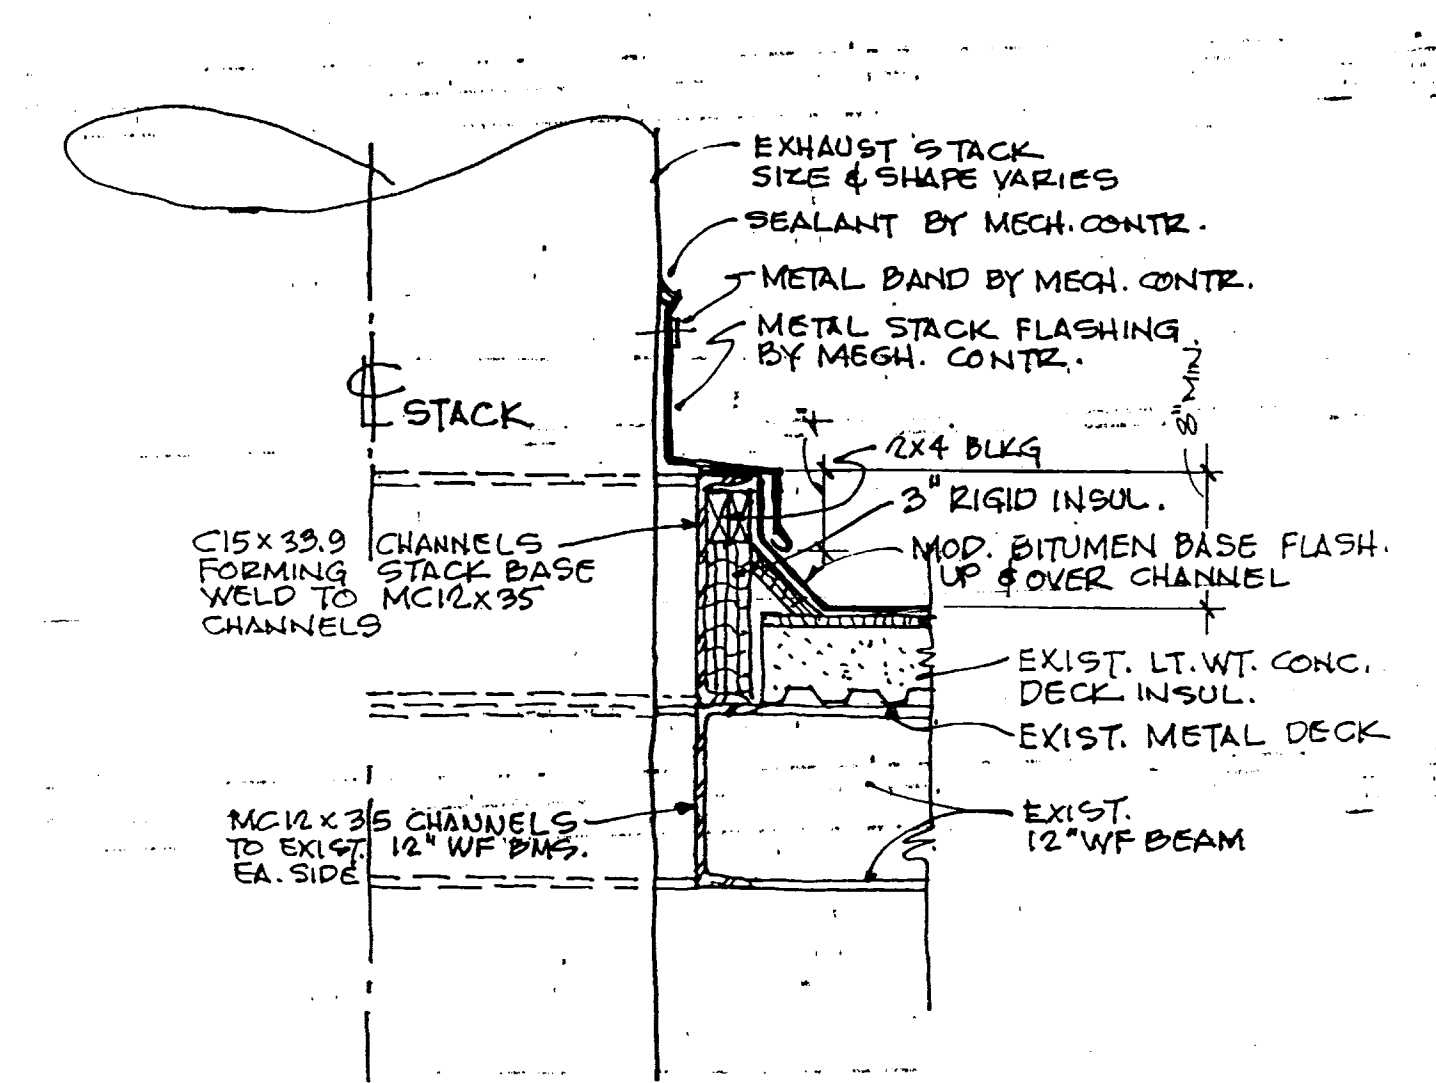 EXHAUST STACK
SIZE & SHAPE VARIES
SEALANT BY MECH. CONTR.
METAL BAND BY MECH. CONTR.
METAL STACK FLASHING
BY MECH. CONTR.
8" MIN.
℄ STACK
4"
2X4 BLKG
3" RIGID INSUL.
MOD. BITUMEN BASE FLASH.
UP & OVER CHANNEL
C15 X 33.9 CHANNELS
FORMING STACK BASE
WELD TO MC12X35
CHANNELS
EXIST. LT. WT. CONC.
DECK INSUL.
EXIST. METAL DECK
MC12 X 35 CHANNELS
TO EXIST. 12" WF BMS.
EA. SIDE
EXIST.
12" WF BEAM